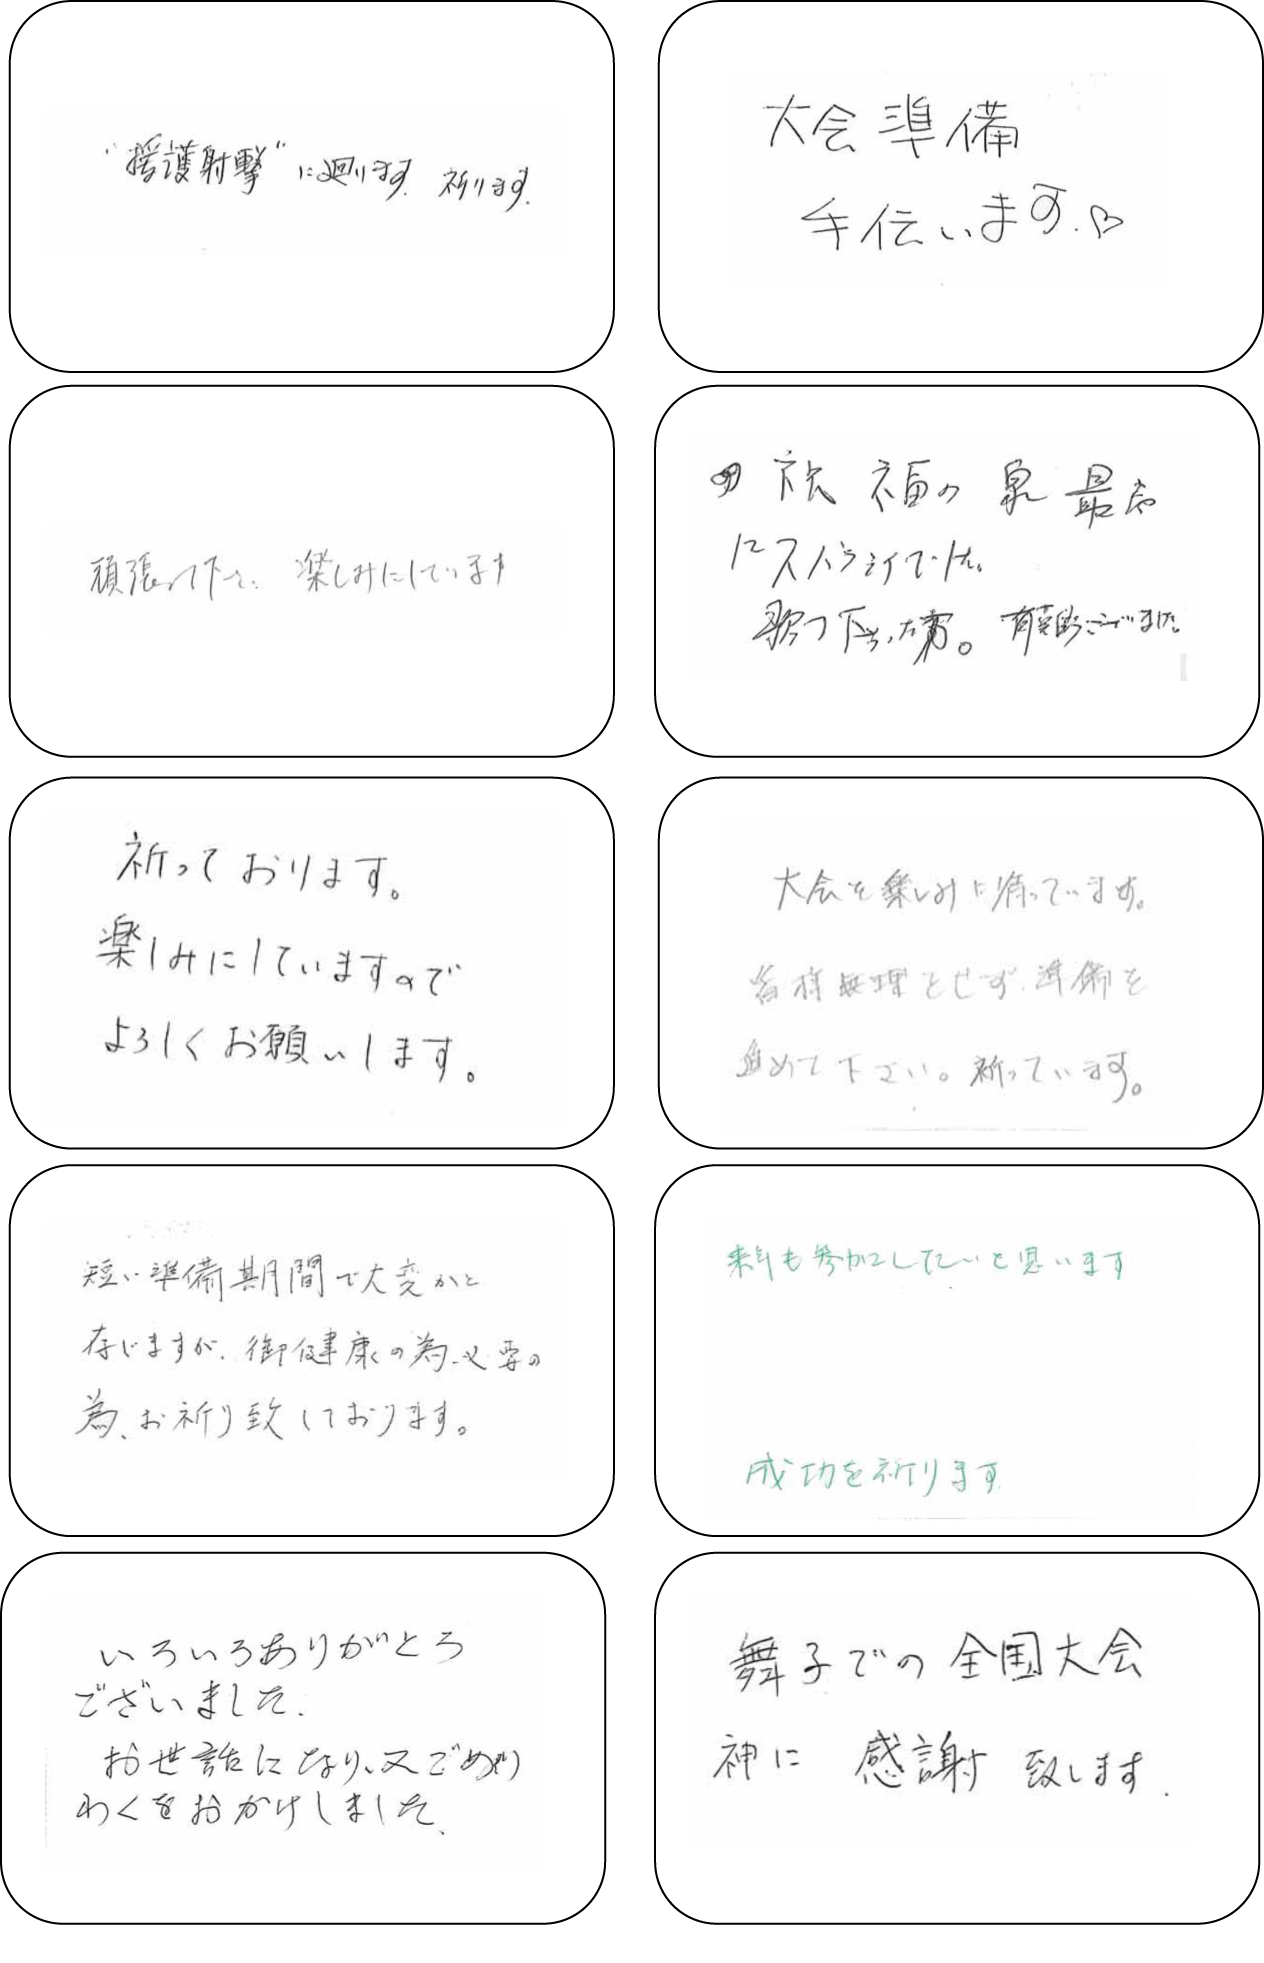 "援護射撃"に廻ります。祈ります。
大会準備
手伝います。♡
頑張って下さい。楽しみにしています
祝福の泉 最高
にスバラシイでした。
歌って下さった方。有難うございました。
祈っております。
楽しみにしていますので
よろしくお願いします。
大会を楽しみに待っています。
皆様無理をせず、準備を
進めて下さい。祈っています。
短い準備期間で大変かと
存じますが、御健康の為、必要の
為、お祈り致しております。
来年も参加したいと思います
成功を祈ります
いろいろありがとう
ございました。
お世話になり、又ごめい
わくをおかけしました。
舞子での全国大会
神に 感謝 致します.